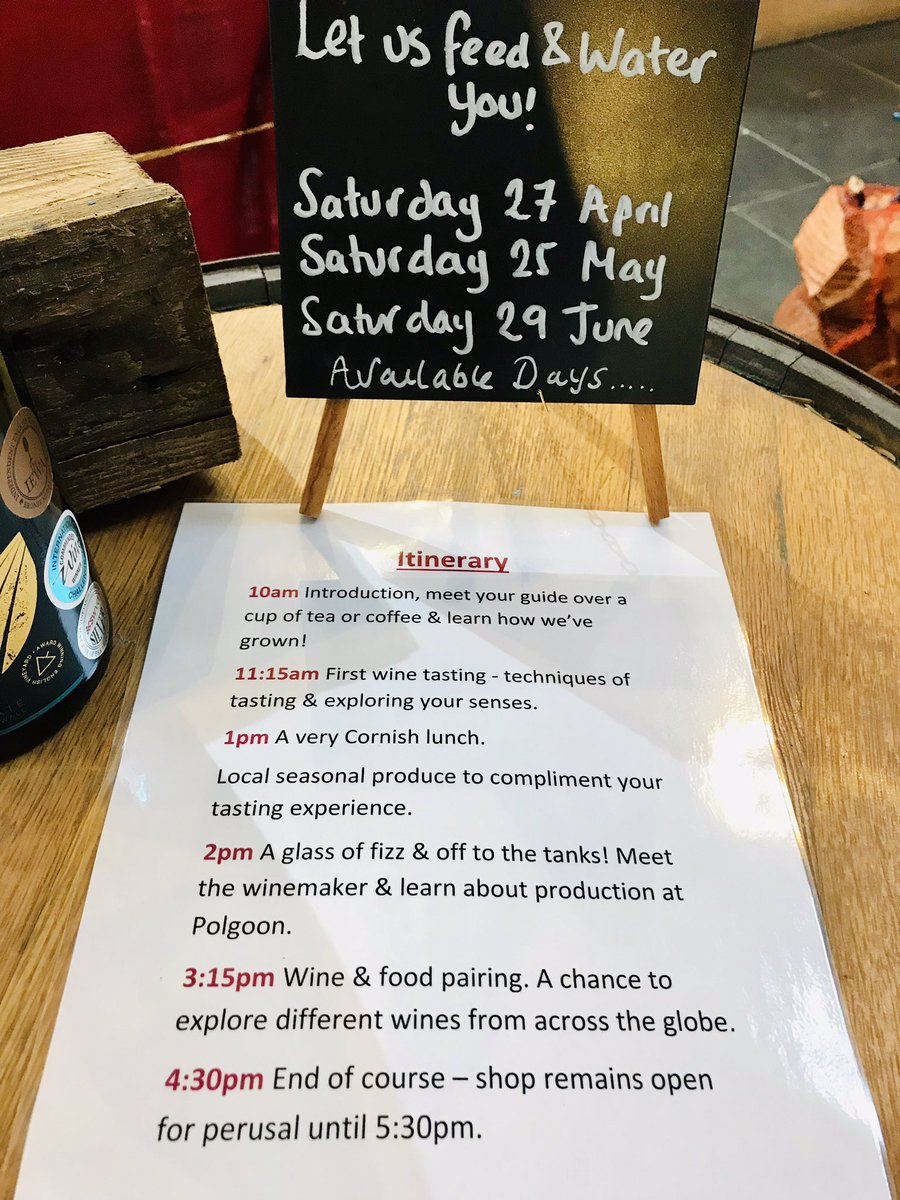 Let us feed & Water
You!
Saturday 27 April
Saturday 25 May
Saturday 29 June
Available Days.....
Itinerary
10am Introduction, meet your guide over a
cup of tea or coffee & learn how we've
grown!
11:15am First wine tasting - techniques of
tasting & exploring your senses.
1pm A very Cornish lunch.
Local seasonal produce to compliment your
tasting experience.
2pm A glass of fizz & off to the tanks! Meet
the winemaker & learn about production at
Polgoon.
3:15pm Wine & food pairing. A chance to
explore different wines from across the globe.
4:30pm End of course – shop remains open
for perusal until 5:30pm.
AWARD WINNING
ENGLISH VINEYARD